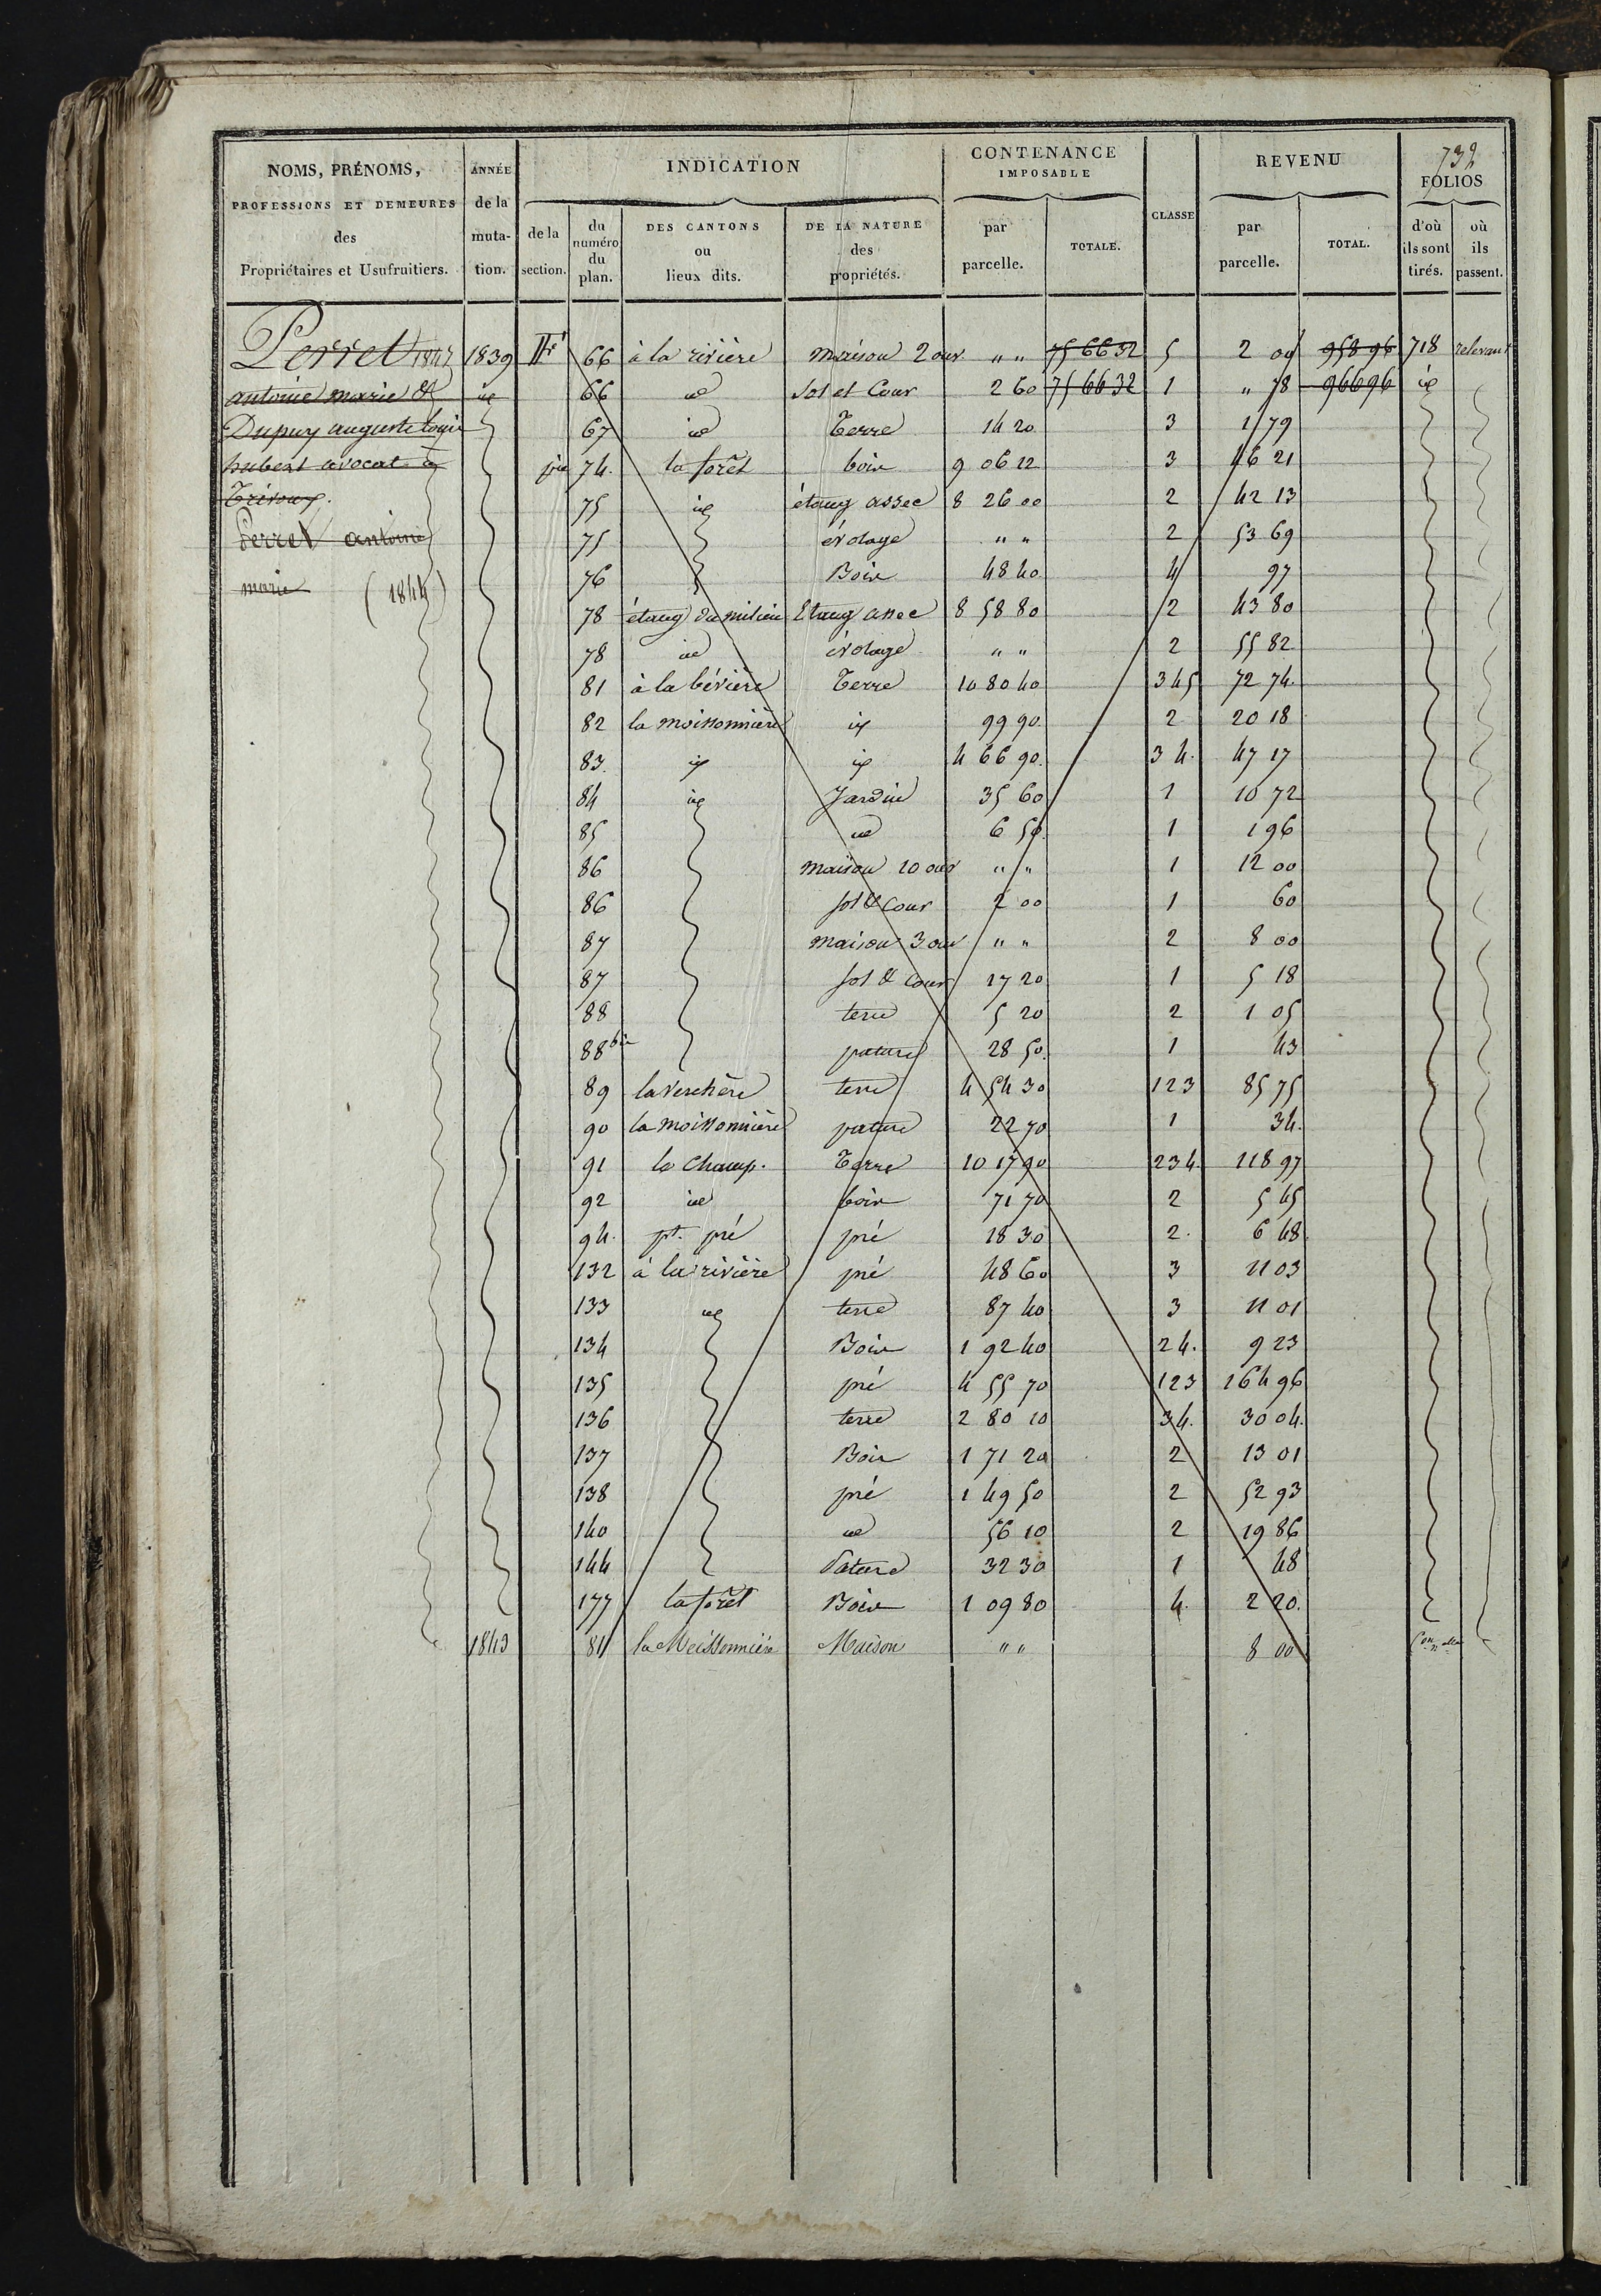 732
NOMS, PRÉNOMS, PROFESSIONS ET DEMEURES des Propriétaires et Usufruitiers.
ANNÉE de la mutation.
INDICATION
de la section.
du numéro du plan.
DES CANTONS ou lieux dits.
DE LA NATURE des propriétés.
CONTENANCE IMPOSABLE
par parcelle.
TOTALE.
CLASSE
REVENU
par parcelle.
TOTAL.
FOLIOS
d'où ils sont tirés.
où ils passent.
Perret 1847
antoine marie &
Dupuy auguste louis
hubert avocat à
Trévoux.
Perret antoine
marie (1844)
1839 F 66 à la rivière maison 2 ouv " " 75 66 32 5 2 00 958 96 718 relevant
id 66 id sol et Cour 2 60 75 66 32 1 " 78 966 96 id
67 id Terre 14 20 3 1 79
74. la forêt bois 9 06 12 3 46 21
75 id étang assec 8 26 00 2 42 13
75 évolage " " 2 53 69
76 Bois 48 40 4 97
78 étang du milieu Etang assec 8 58 80 2 43 80
78 id évolage " " 2 55 82
81 à la bévière Terre 10 80 40 345 72 74
82 la moissonnière id 99 90 2 20 18
83 id id 4 66 90 34. 47 17
84 id Jardin 35 60 1 10 72
85 id 6 50 1 1 96
86 maison 10 ouv " " 1 12 00
86 sol & Cour 2 00 1 60
87 maison 3 ouv " " 2 8 00
87 sol & Cour 17 20 1 5 18
88 terre 5 20 2 1 05
88 bis pature 28 50 1 43
89 la verchère terre 4 54 30 123 85 75
90 la moissonnière pature 22 70 1 34.
91 le Champ. Terre 10 17 90 234. 118 97
92 id bois 71 70 2 5 45
94. pt. pré pré 18 30 2. 6 48
132 à la rivière pré 48 60 3 11 03
133 id terre 87 40 3 11 01
134 Bois 1 92 40 24. 9 23
135 pré 4 55 70 123 164 96
136 terre 2 80 10 34. 30 04.
137 Bois 1 71 20 2 13 01
138 pré 1 49 50 2 52 93
140 id 56 10 2 19 86
144 Pature 32 30 1 48
177 la forêt Bois 1 09 80 4. 2 20.
1843 81 la Meissonnière Maison " " 8 00 Con nelle